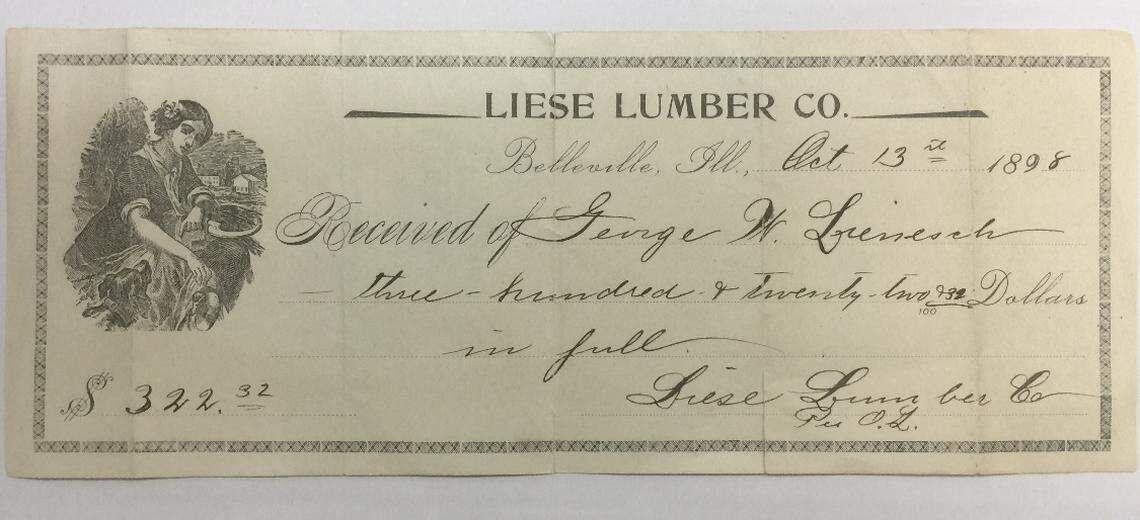 LIESE LUMBER CO.
Belleville, Ill., Oct 13th 1898
Received of George W. Lienesch
three-hundred & twenty-two & 32/100 Dollars
in full
$ 322.32
Liese Lumber Co
Per O.L.